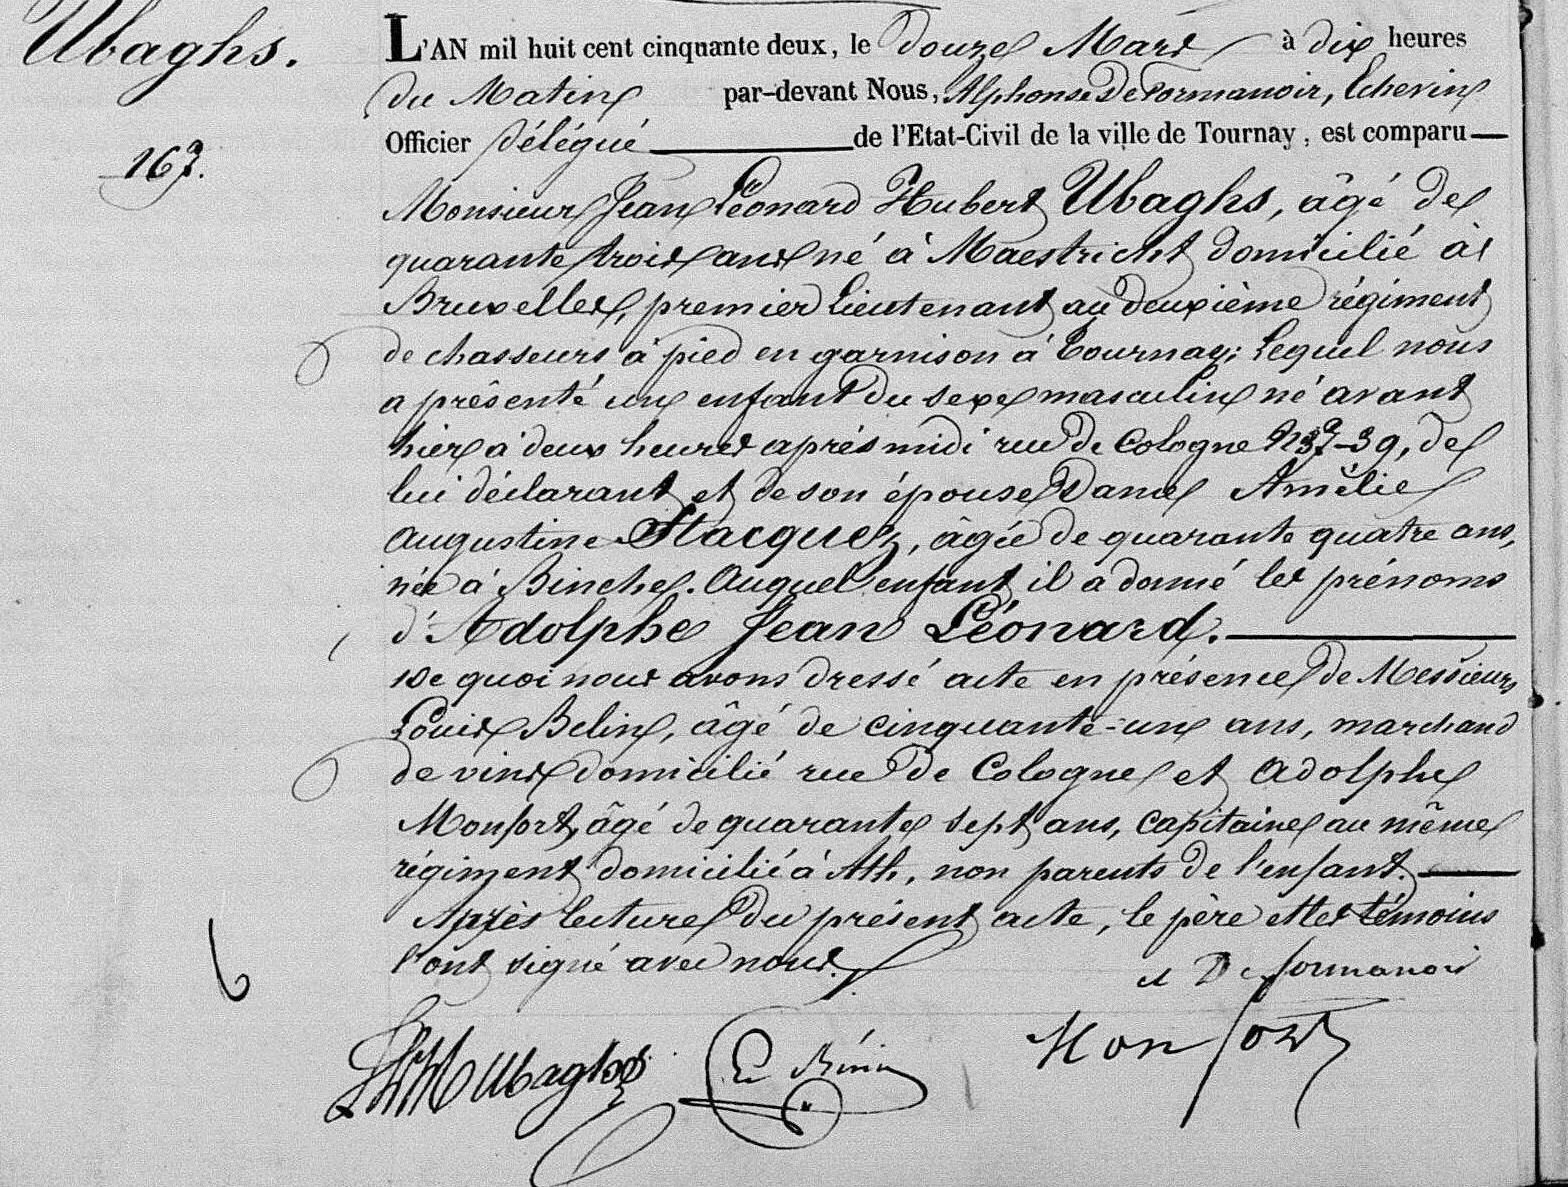 Ubaghs.
167.
L'AN mil huit cent cinquante deux, le Douze Mars à dix heures
du Matin par-devant Nous, Alphonse De Formanoir, Echevin
Officier Délégué de l'Etat-Civil de la ville de Tournay, est comparu
Monsieur Jean Léonard Hubert Ubaghs, âgé de
quarante trois ans né à Maestricht domicilié à
Bruxelles, premier Lieutenant au deuxième régiment
de chasseurs à pied en garnison à Tournay; Lequel nous
a présenté un enfant du sexe masculin né avant
hier à deux heures après midi rue de Cologne N 37-39, de
lui déclarant et de son épouse Dame Amélie
Augustine Stacquez, âgée de quarante quatre ans,
née à Binche. Auquel enfant il a donné les prénoms
d'Adolphe Jean Léonard.
De quoi nous avons dressé acte en présence de Messieurs
Louis Belin, âgé de cinquante-un ans, marchand
de vins domicilié rue de Cologne et Adolphe
Monfort, âgé de quarante sept ans, Capitaine au même
régiment domicilié à Ath, non parents de l'enfant.
Après lecture du présent acte, le père et les témoins
l'ont signé avec nous.
A De formanoir
Ubaghs
Monfort